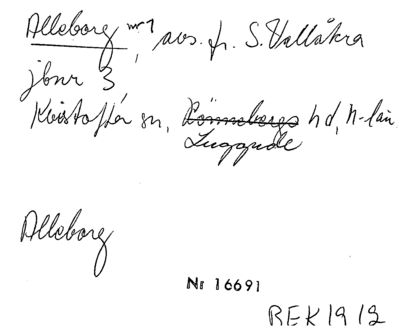 Alleborg nr 1, avs. fr. S. Vallåkra
jbnr 3
Kvistofta sn, Rönnebergs hd, M-län
Luggude
Alleborg
Nr 16691
REK 1912